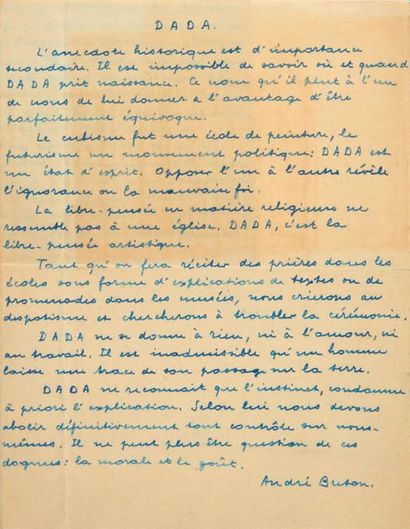 DADA.
L'anecdote historique est d'importance
secondaire. Il est impossible de savoir où et quand
DADA prit naissance. Ce nom qu'il plut à l'un
de nous de lui donner a l'avantage d'être
parfaitement équivoque.
Le cubisme fut une école de peinture, le
futurisme un mouvement politique: DADA est
un état d'esprit. Opposer l'un à l'autre révèle
l'ignorance ou la mauvaise foi.
La libre-pensée en matière religieuse ne
ressemble pas à une église. DADA, c'est la
libre-pensée artistique.
Tant qu'on fera réciter des prières dans les
écoles sous forme d'explications de textes ou de
promenades dans les musées, nous crierons au
despotisme et chercherons à troubler la cérémonie.
DADA ne se donne à rien, ni à l'amour, ni
au travail. Il est inadmissible qu'un homme
laisse une trace de son passage sur la terre.
DADA ne reconnait que l'instinct, condamne
à priori l'explication. Selon lui nous devons
abolir définitivement tout contrôle sur nous-
mêmes. Il ne peut plus être question de ces
dogmes: la morale et le goût.
André Breton.